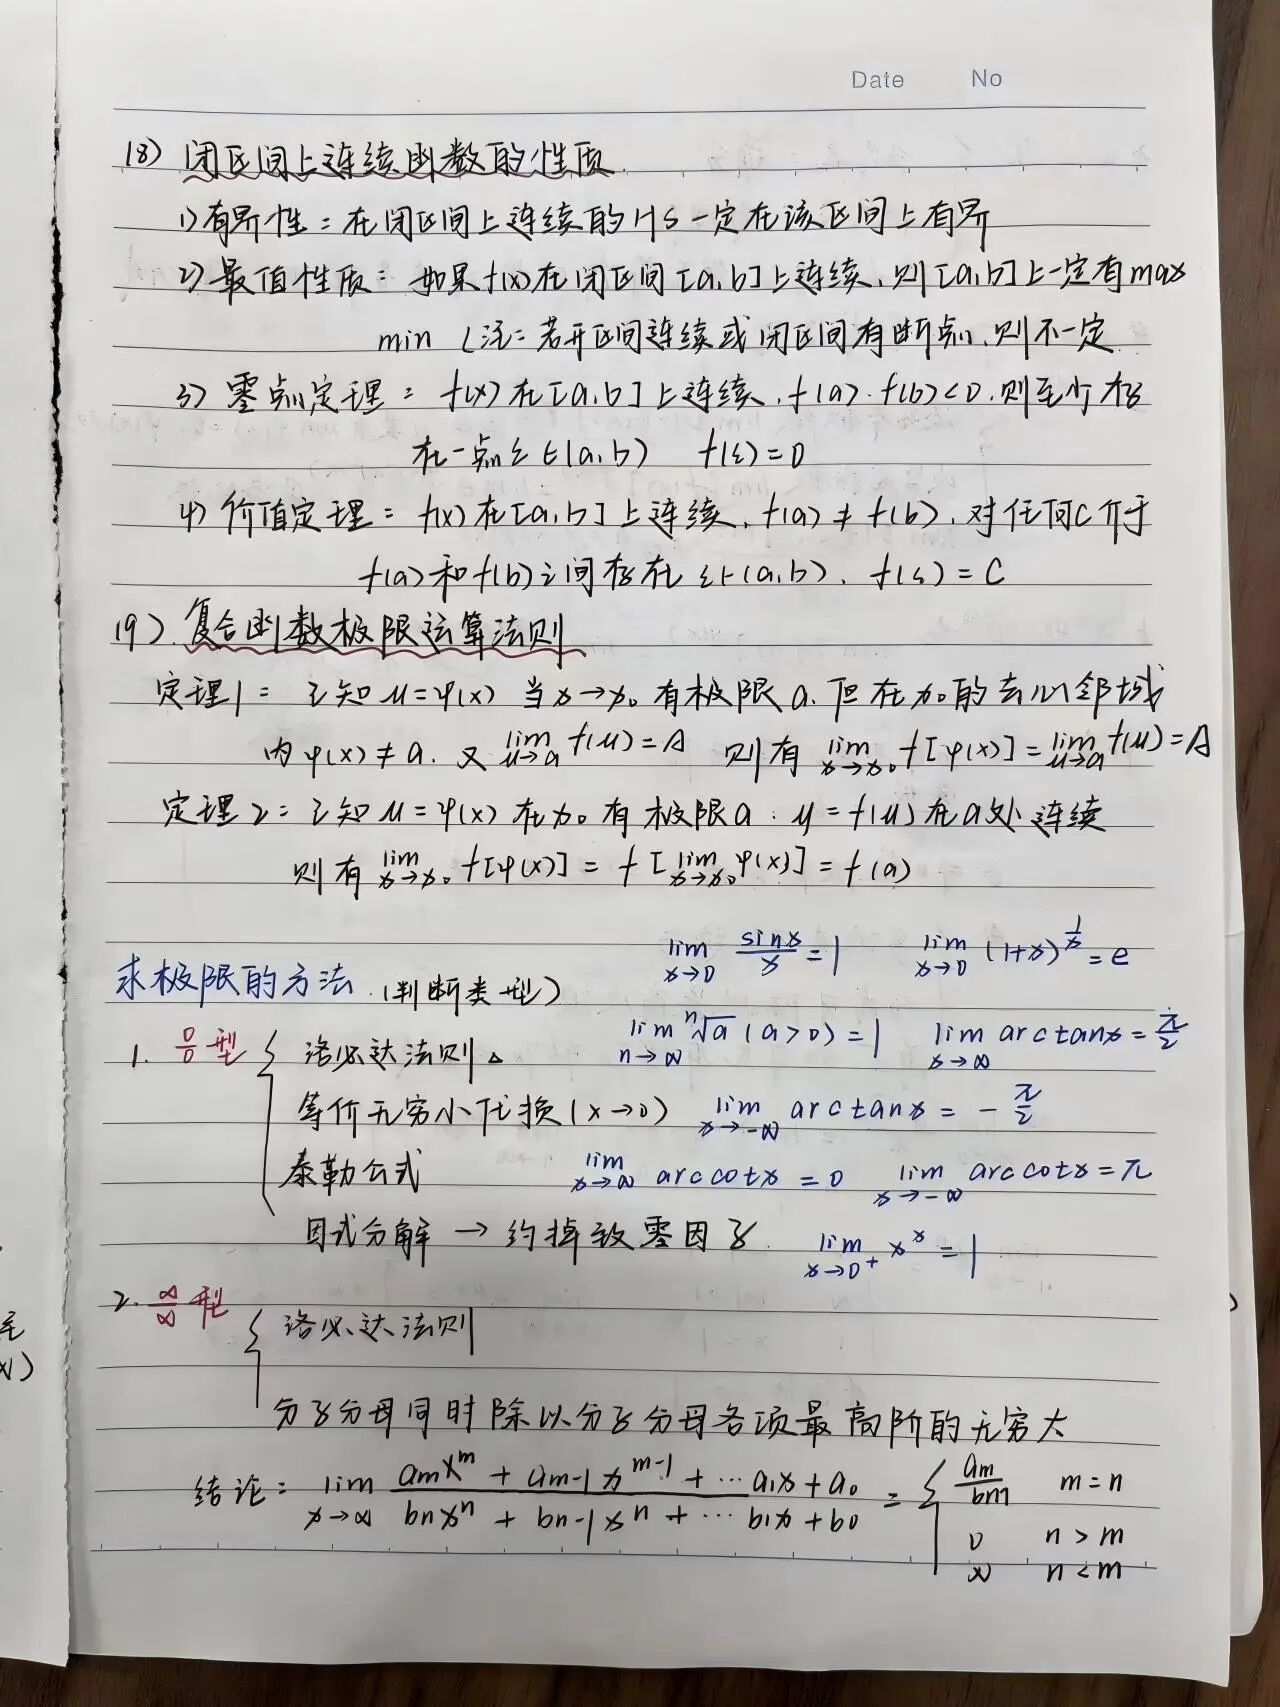 Date No
18) 闭区间上连续函数的性质
1) 有界性: 在闭区间上连续的HS一定在该区间上有界
2) 最值性质: 如果f(x)在闭区间[a,b]上连续,则[a,b]上一定有max
min (注: 若开区间连续或闭区间有断点,则不一定
3) 零点定理: f(x)在[a,b]上连续,f(a)·f(b)<0,则至少存
在一点ξ∈(a,b) f(ξ)=0
4) 价值定理: f(x)在[a,b]上连续,f(a)≠f(b),对任何C介于
f(a)和f(b)之间存在ξ∈(a,b), f(ξ)=C
19) 复合函数极限运算法则
定理1: 已知u=φ(x) 当x→x₀有极限a,但在x₀的去心邻域
内φ(x)≠a. 又 lim u→a f(u)=A 则有 lim x→x₀ f[φ(x)]=lim u→a f(u)=A
定理2: 已知u=φ(x)在x₀有极限a. y=f(u)在a处连续
则有 lim x→x₀ f[φ(x)]=f[lim x→x₀ φ(x)]=f(a)
lim x→0 sinx/x=1 lim x→0 (1+x)^(1/x)=e
求极限的方法 (判断类型)
1. 0/0型 { 洛必达法则△ lim n→∞ ⁿ√a (a>0)=1 lim x→∞ arctanx=π/2
等价无穷小代损(x→0) lim x→-∞ arctanx=-π/2
泰勒公式 lim x→∞ arccotx=0 lim x→-∞ arccotx=π
因式分解→约掉致零因子 lim x→0⁺ x^x=1
2. ∞/∞型 { 洛必达法则
分子分母同时除以分子分母各项最高阶的无穷大
结论: lim x→∞ (amx^m+am-1x^(m-1)+…a₁x+a₀)/(bnx^n+bn-1x^n+…b₁x+b0) = { am/bm m=n
0 n>m
∞ n<m